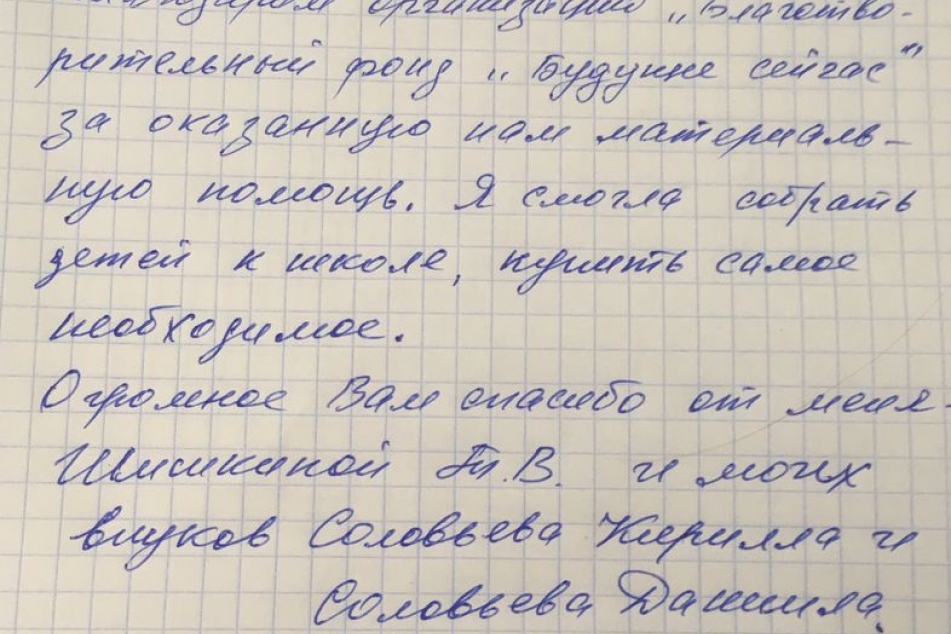 организации „Благотво-
рительный фонд „Будущее сейчас"
за оказанную нам материаль-
ную помощь. Я смогла собрать
детей к школе, купить самое
необходимое.
Огромное Вам спасибо от меня
Шишкиной Т.В. и моих
внуков Соловьева Кирилла и
Соловьева Даниила.